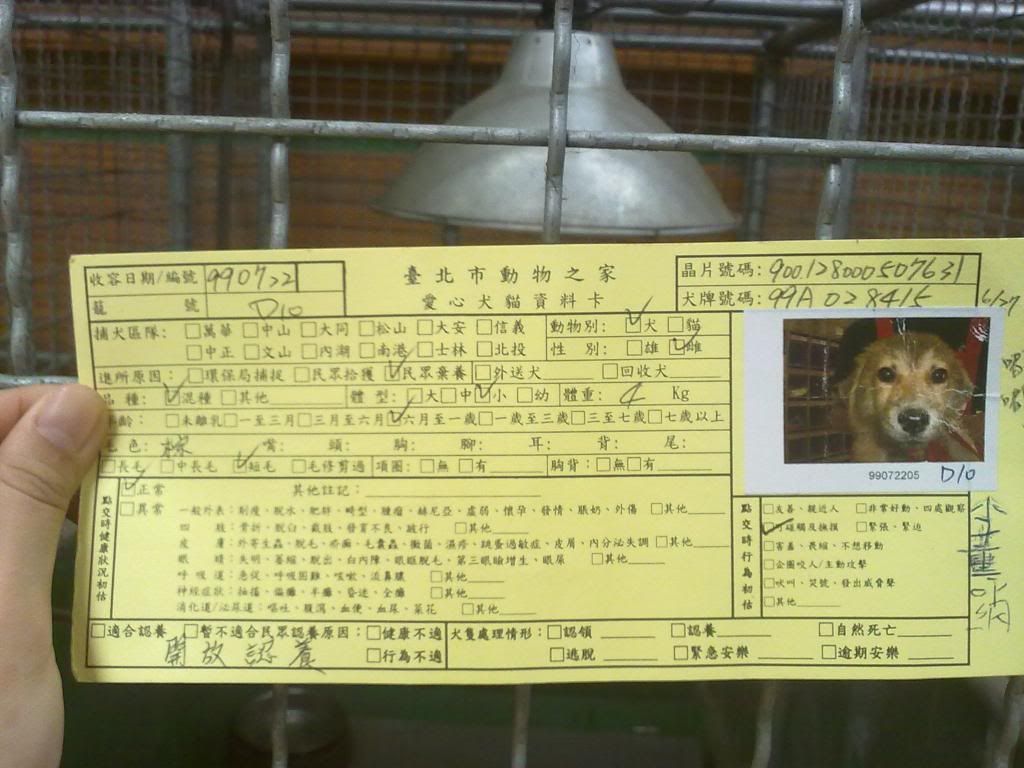 臺北市動物之家
愛心犬貓資料卡
收容日期/編號 990722
籠號 D10
晶片號碼: 900128000507631
犬牌號碼: 99A028415
捕犬區隊: □萬華 □中山 □大同 □松山 □大安 □信義
□中正 □文山 □內湖 □南港 □士林 □北投
動物別: ☑犬 □貓
性別: □雄 ☑雌
進所原因: □環保局捕捉 □民眾拾獲 ☑民眾棄養 □外送犬 □回收犬
品種: ☑混種 □其他 體型: □大 □中 ☑小 □幼 體重: 4 Kg
年齡: □未離乳 □一至三月 □三月至六月 ☑六月至一歲 □一歲至三歲 □三至七歲 □七歲以上
毛色: 棕 嘴: 頭: 胸: 腳: 耳: 背: 尾:
□長毛 □中長毛 ☑短毛 □毛修剪過 項圈: □無 □有 胸背: □無 □有
點交時健康狀況初估
☑正常 其他註記:
□異常 一般外表: 削瘦、脫水、肥胖、畸型、腫瘤、赫尼亞、虛弱、懷孕、發情、脹奶、外傷 □其他
四肢: 骨折、脫臼、截肢、發育不良、跛行 □其他
皮膚: 外寄生蟲、脫毛、疥癬、毛囊蟲、黴菌、濕疹、跳蚤過敏症、皮屑、內分泌失調 □其他
眼睛: 失明、萎縮、脫出、白內障、眼眶脫毛、第三眼瞼增生、眼屎 □其他
呼吸道: 急促、呼吸困難、咳嗽、流鼻膿 □其他
神經症狀: 抽搐、偏癱、半癱、昏迷、全癱 □其他
消化道/泌尿道: 嘔吐、腹瀉、血便、血尿、菜花 □其他
99072205 D10
點交時行為初估
□友善、親近人 □非常好動、四處觀察
☑可碰觸及撫摸 □緊張、緊迫
□害羞、畏縮、不想移動
□企圖咬人/主動攻擊
□吠叫、哭號、發出威脅聲
□其他
□適合認養 □暫不適合民眾認養原因: □健康不適
□行為不適
開放認養
犬隻處理情形: □認領 □認養 □自然死亡
□逃脫 □緊急安樂 □逾期安樂